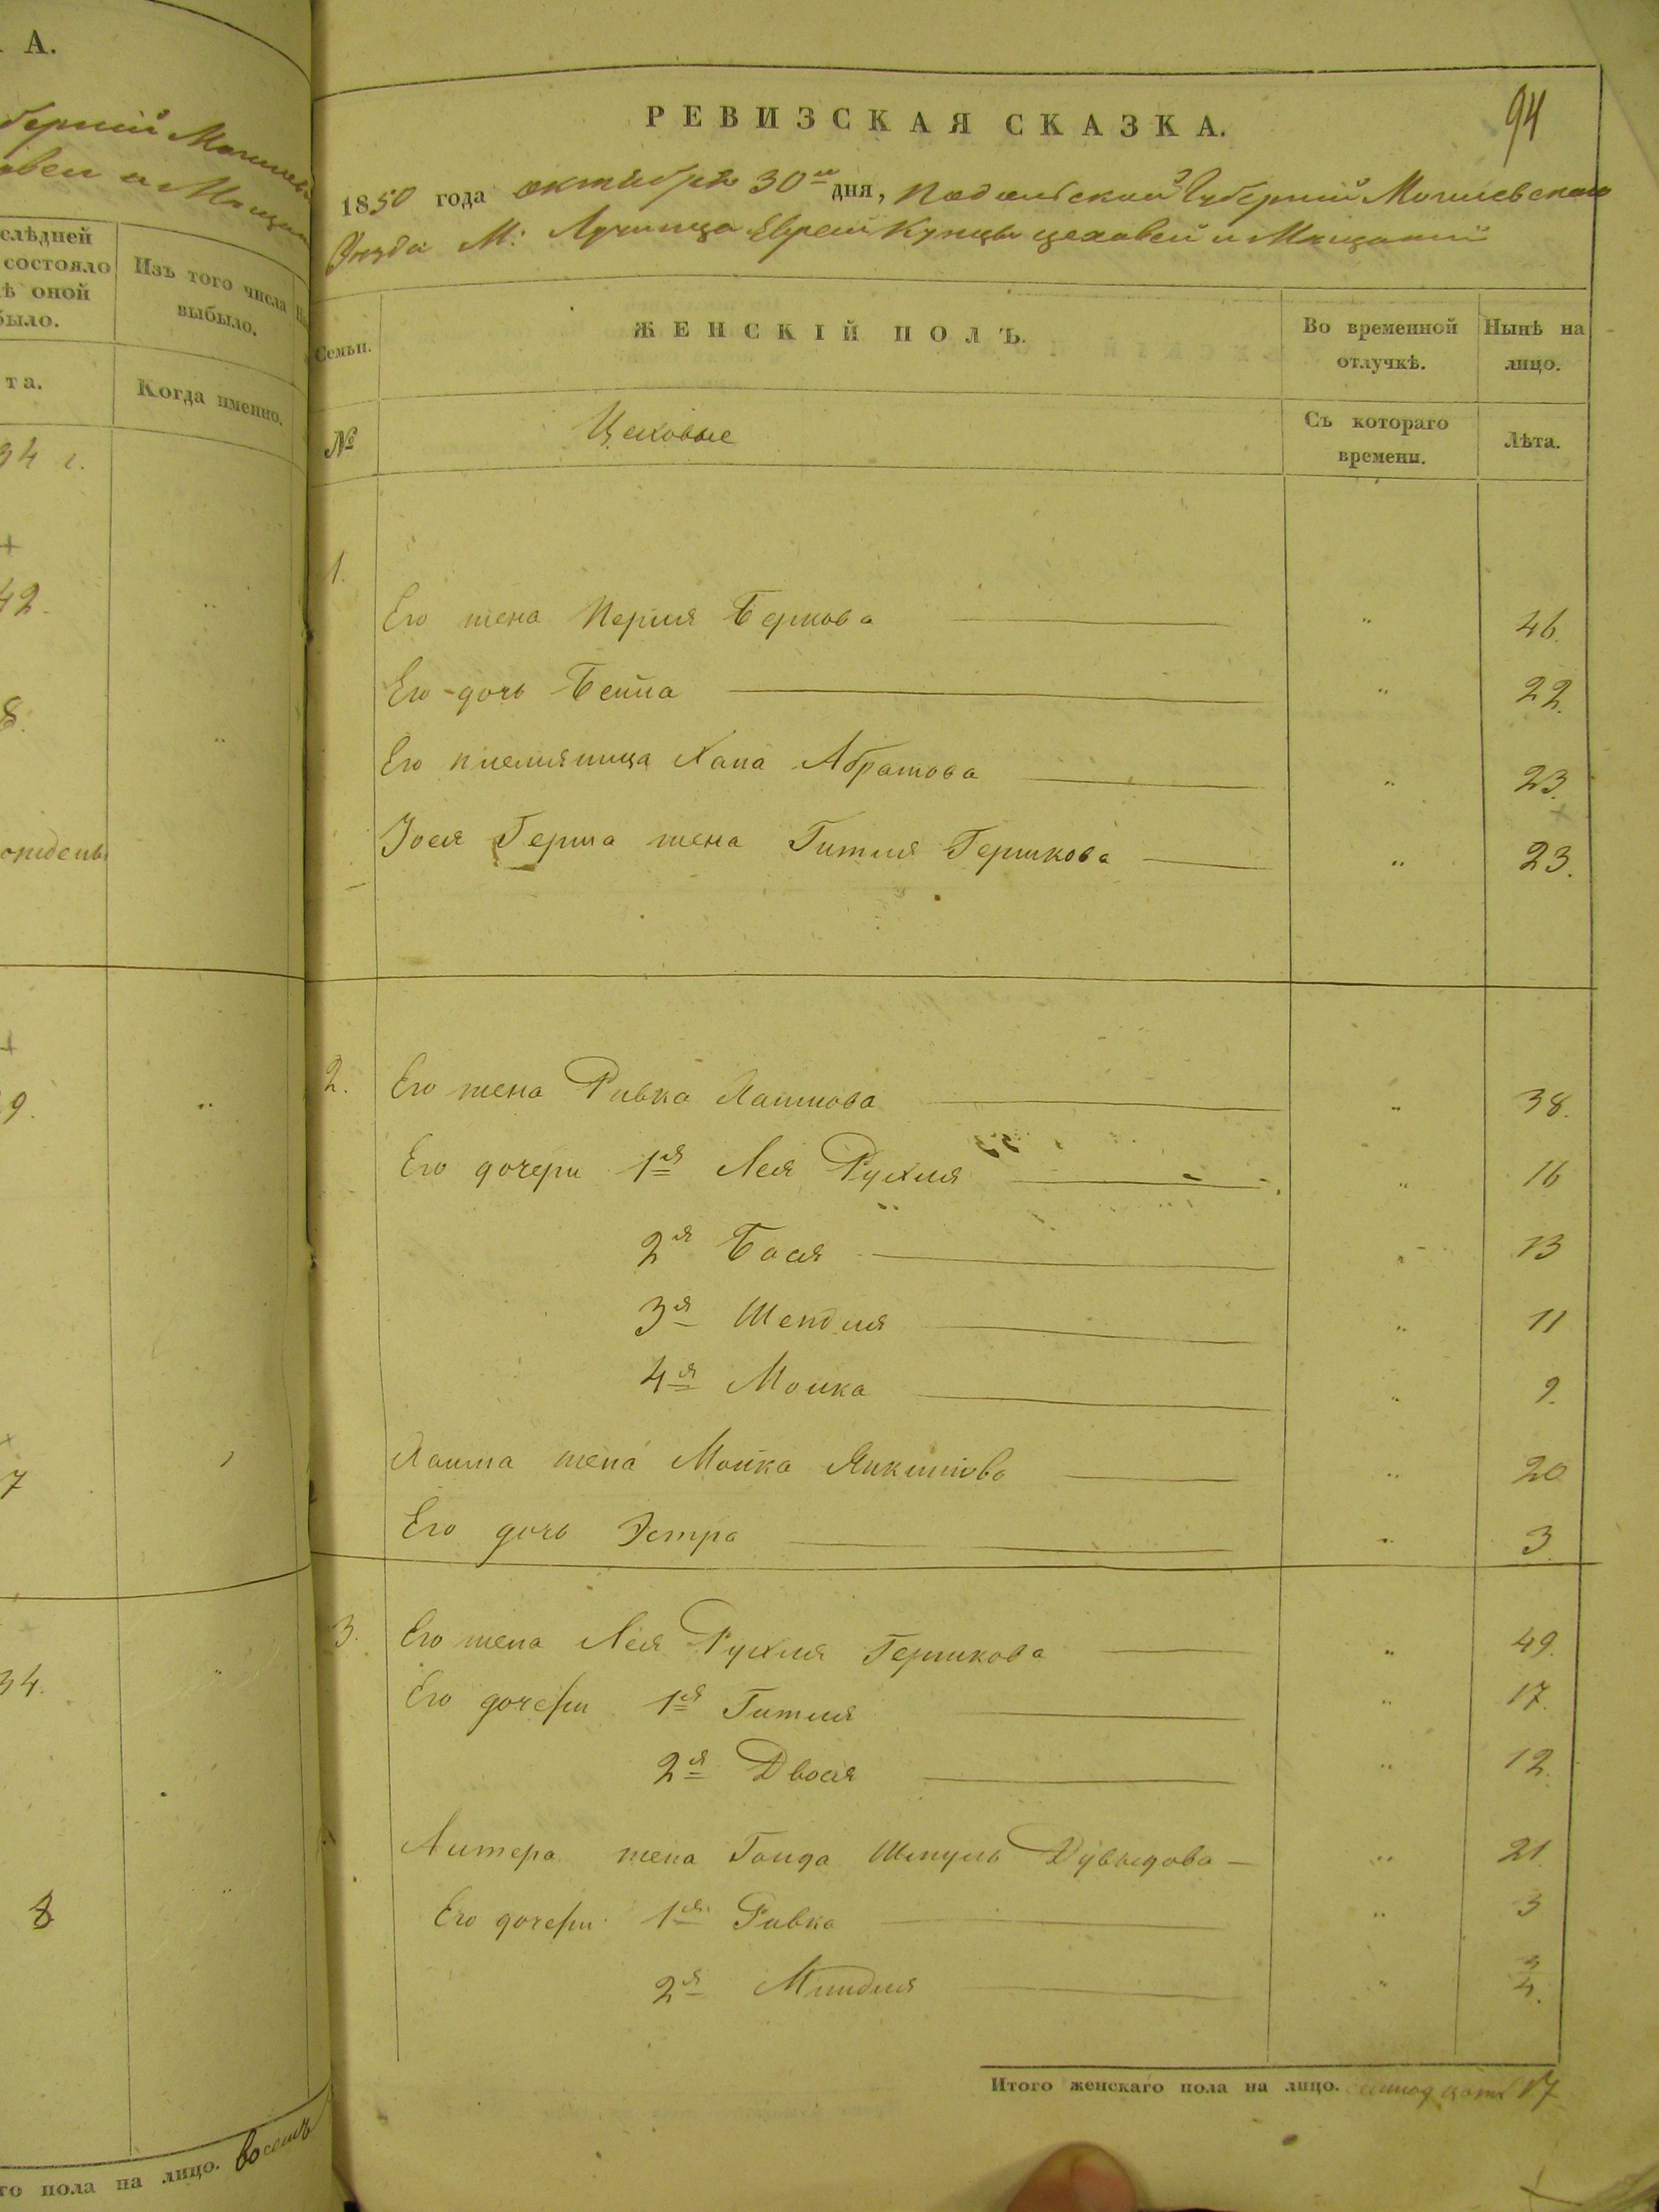 А.
слѣдней
состояло
ѣ оной
было.
Изъ того числа
выбыло.
та.
Когда именно.
34 г.
42.
8.
9.
7
34.
8
го пола на лицо. восемъ
94
РЕВИЗСКАЯ СКАЗКА.
1850 года октября 30го дня, Подольской Губерніи Могилевскаго
Уезда М: Лучинца Евреи Купцы цеховей и Мещаній
Семьи.
ЖЕНСКІЙ ПОЛЪ.
Во временной
отлучкѣ.
Нынѣ на
лицо.
№
Цеховые
Съ котораго
времени.
Лѣта.
1.
Его жена Перля Беркова " 46.
Его дочь Бейла " 22.
Его племяница Хана Абрамова " 23.
Іося Герша жена Гитля Гершкова " 23.
2. Его жена Ривка Хаимова " 38.
Его дочери 1я Лея Рухля " 16
2я Бася " 13
3я Шендля " 11
4я Молка " 9.
Хаима жена Молка " 20
Его дочь Эстра " 3
3. Его жена Лея Рухля Гершкова " 49.
Его дочери 1я Гитля " 17.
2я Двося " 12.
Литера жена Голда Шмуль Дувыдова " 21.
Его дочери 1я Ривка " 3
2я Миндля " 4.
Итого женскаго пола на лицо. семнодцать 17